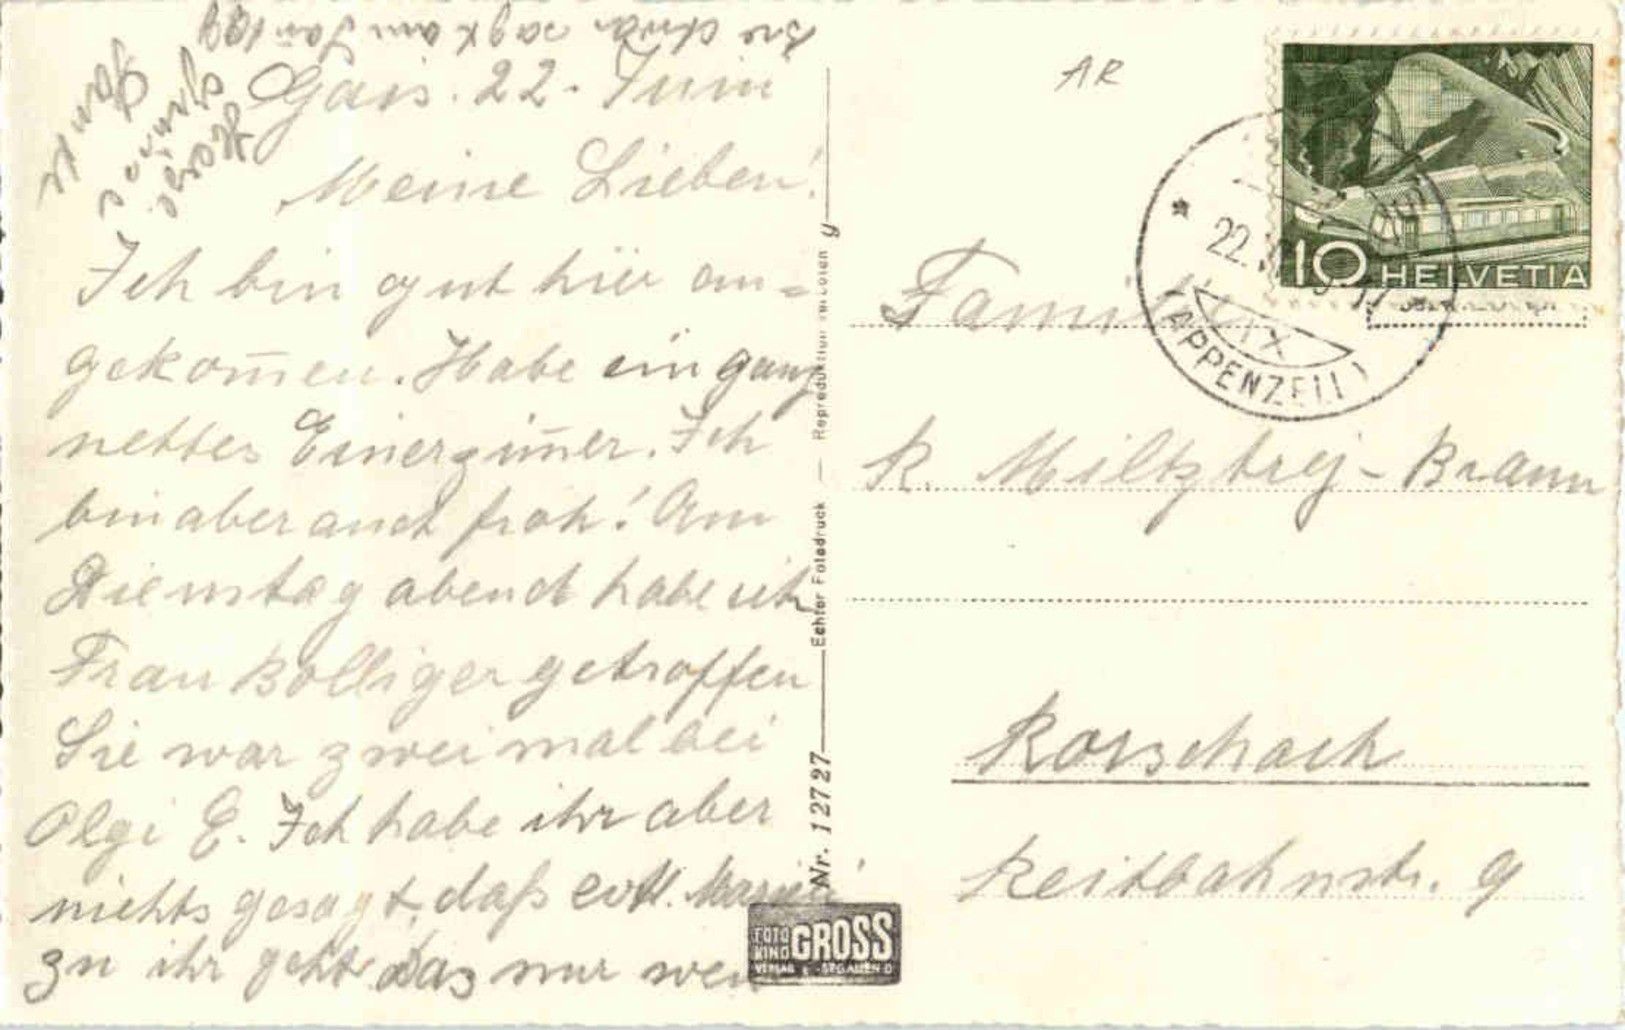 Gais. 22. Juni
Meine Lieben!
Ich bin gut hier an=
gekom̅en. Habe ein ganz
nettes Einerzim̅er. Ich
bin aber auch froh! Am
Dienstag abend habe ich
Frau Bolliger getroffen
Sie war zweimal bei
Olgi E. Ich habe ihr aber
nichts gesagt, daß evtl.
zu ihr geht. Das nur wen
Sie etwas sagt am
Grüsse
AR
10 HELVETIA
22.
(APPENZELL)
Familie
K. Miltzbrej-Braun
Rorschach
Reitbahnstr. 9
Nr. 12727 — Echter Fotodruck — Reproduktion verboten
FOTO
KINO GROSS
VERLAG ST. GALLEN O